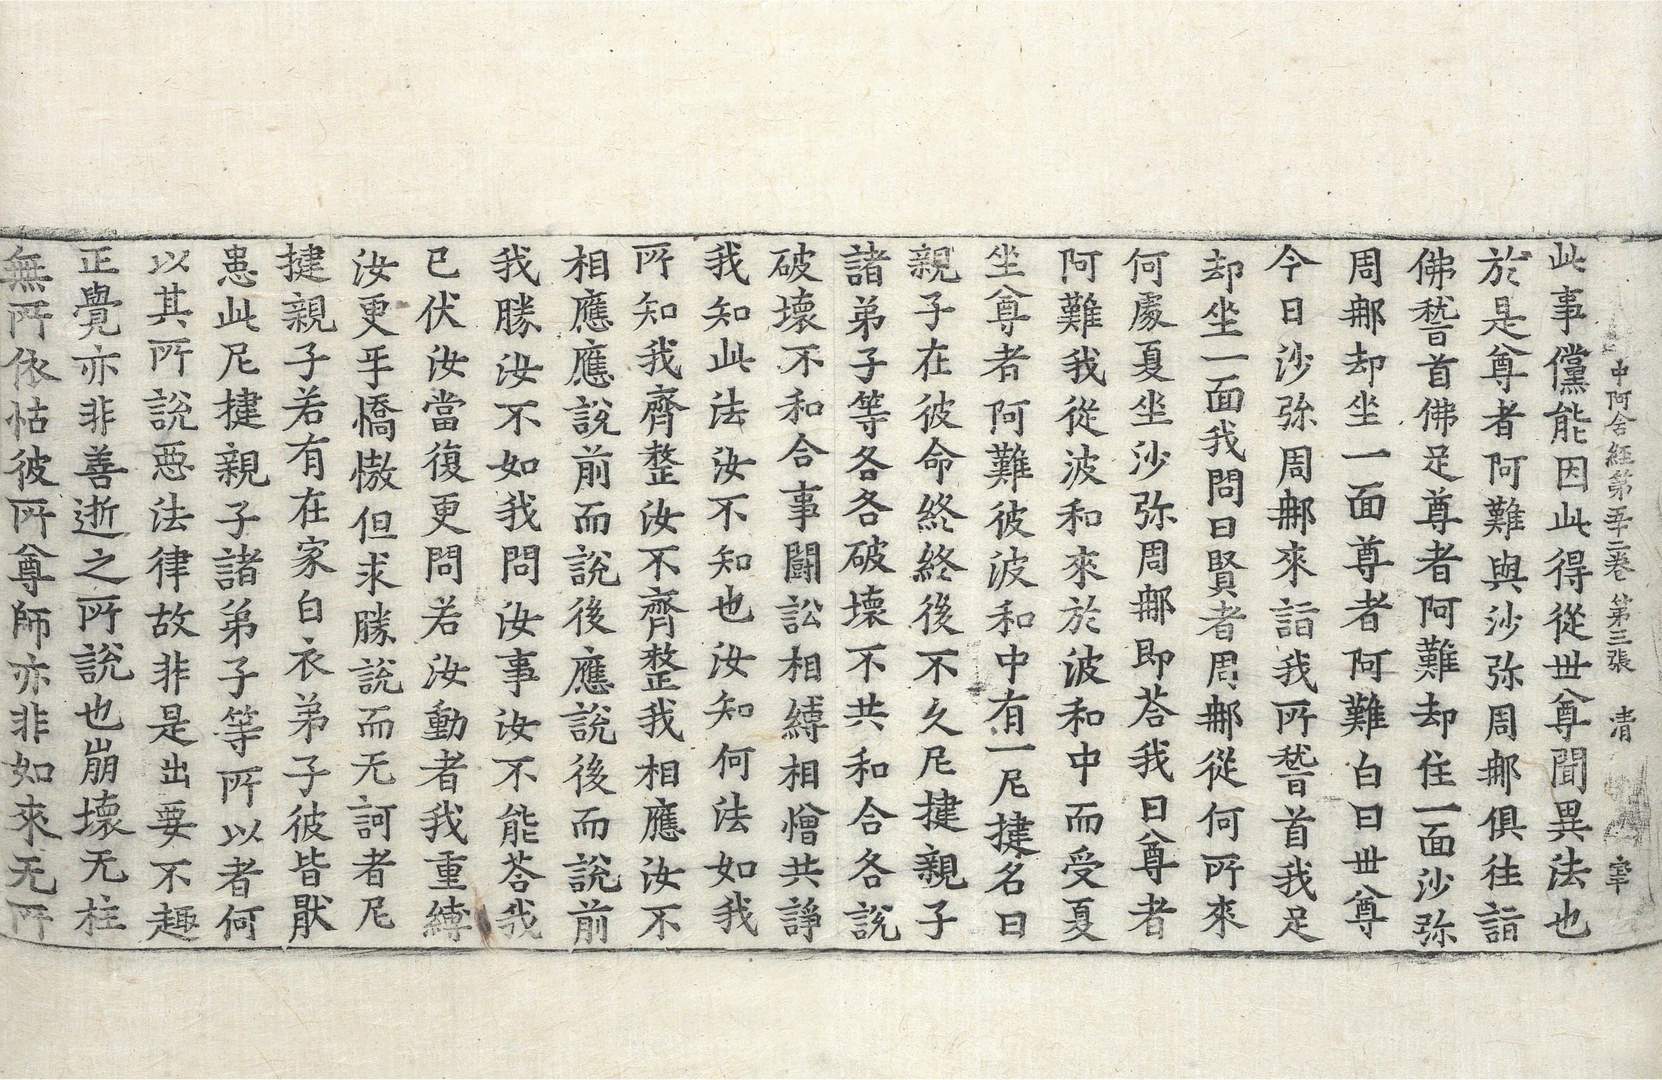 中阿含經第五十二卷 第三張 清
此事儻能因此得從世尊聞異法也
於是尊者阿難與沙弥周郍俱往詣
佛嵆首佛足尊者阿難却住一面沙弥
周郍却坐一面尊者阿難白曰世尊
今日沙弥周郍來詣我所嵆首我足
却坐一面我問曰賢者周郍從何所來
何處夏坐沙弥周郍即荅我曰尊者
阿難我從波和來於波和中而受夏
坐尊者阿難彼波和中有一尼揵名曰
親子在彼命終終後不久尼揵親子
諸弟子等各各破壞不共和合各說
破壞不和合事鬪訟相縛相憎共諍
我知此法汝不知也汝知何法如我
所知我齊整汝不齊整我相應汝不
相應應說前而說後應說後而說前
我勝汝不如我問汝事汝不能荅我
已伏汝當復更問若汝動者我重縛
汝更乎憍慠但求勝說而无訶者尼
揵親子若有在家白衣弟子彼皆厭
患此尼揵親子諸弟子等所以者何
以其所說惡法律故非是出要不趣
正覺亦非善逝之所說也崩壞无柱
無所依怙彼所尊師亦非如來无所